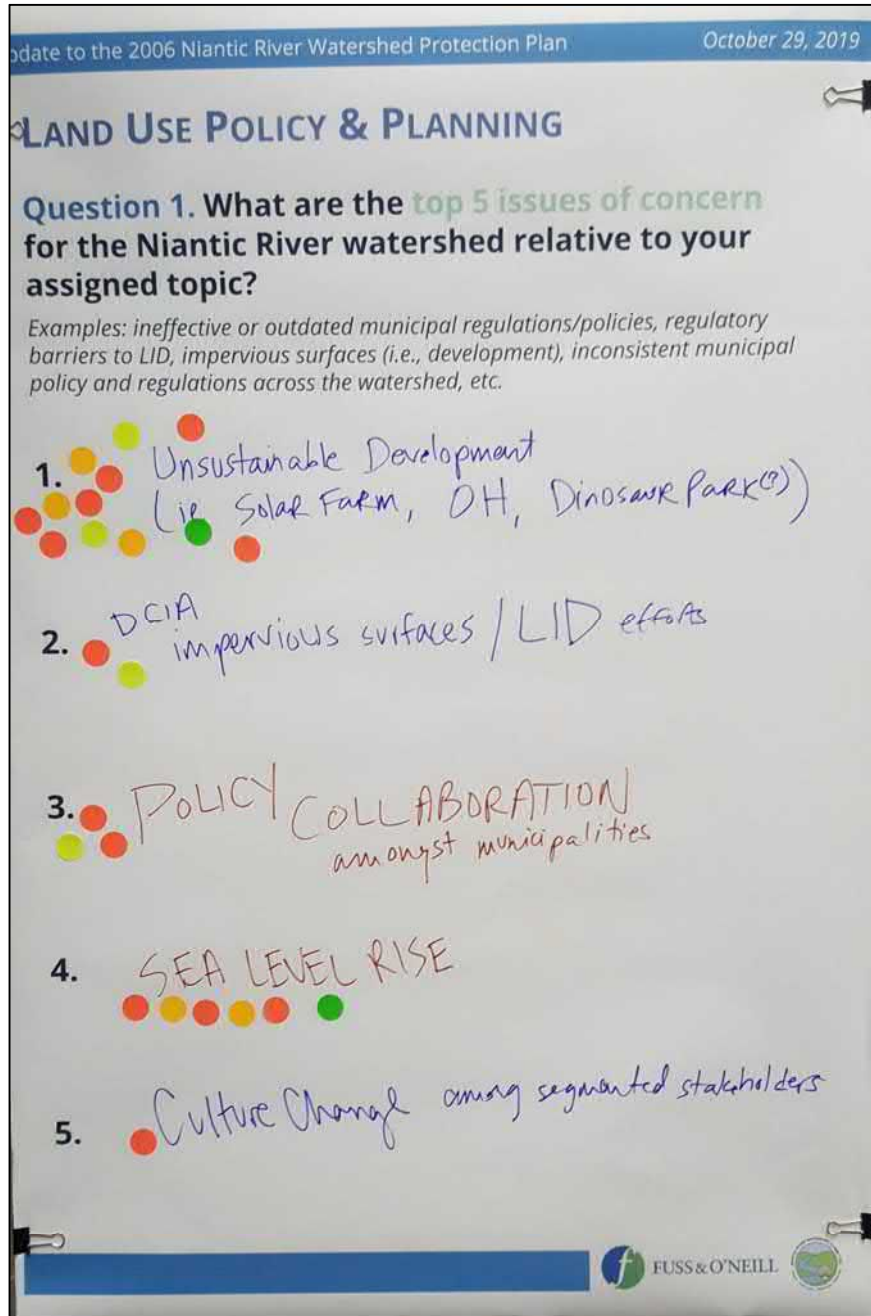 odate to the 2006 Niantic River Watershed Protection Plan
October 29, 2019
LAND USE POLICY & PLANNING
Question 1. What are the top 5 issues of concern
for the Niantic River watershed relative to your
assigned topic?
Examples: ineffective or outdated municipal regulations/policies, regulatory
barriers to LID, impervious surfaces (i.e., development), inconsistent municipal
policy and regulations across the watershed, etc.
1. Unsustainable Development
(ie Solar Farm, OH, Dinosaur Park(?))
2. DCIA
impervious surfaces / LID efforts
3. POLICY COLLABORATION
amongst municipalities
4. SEA LEVEL RISE
5. Culture Change among segmented stakeholders
f FUSS & O'NEILL